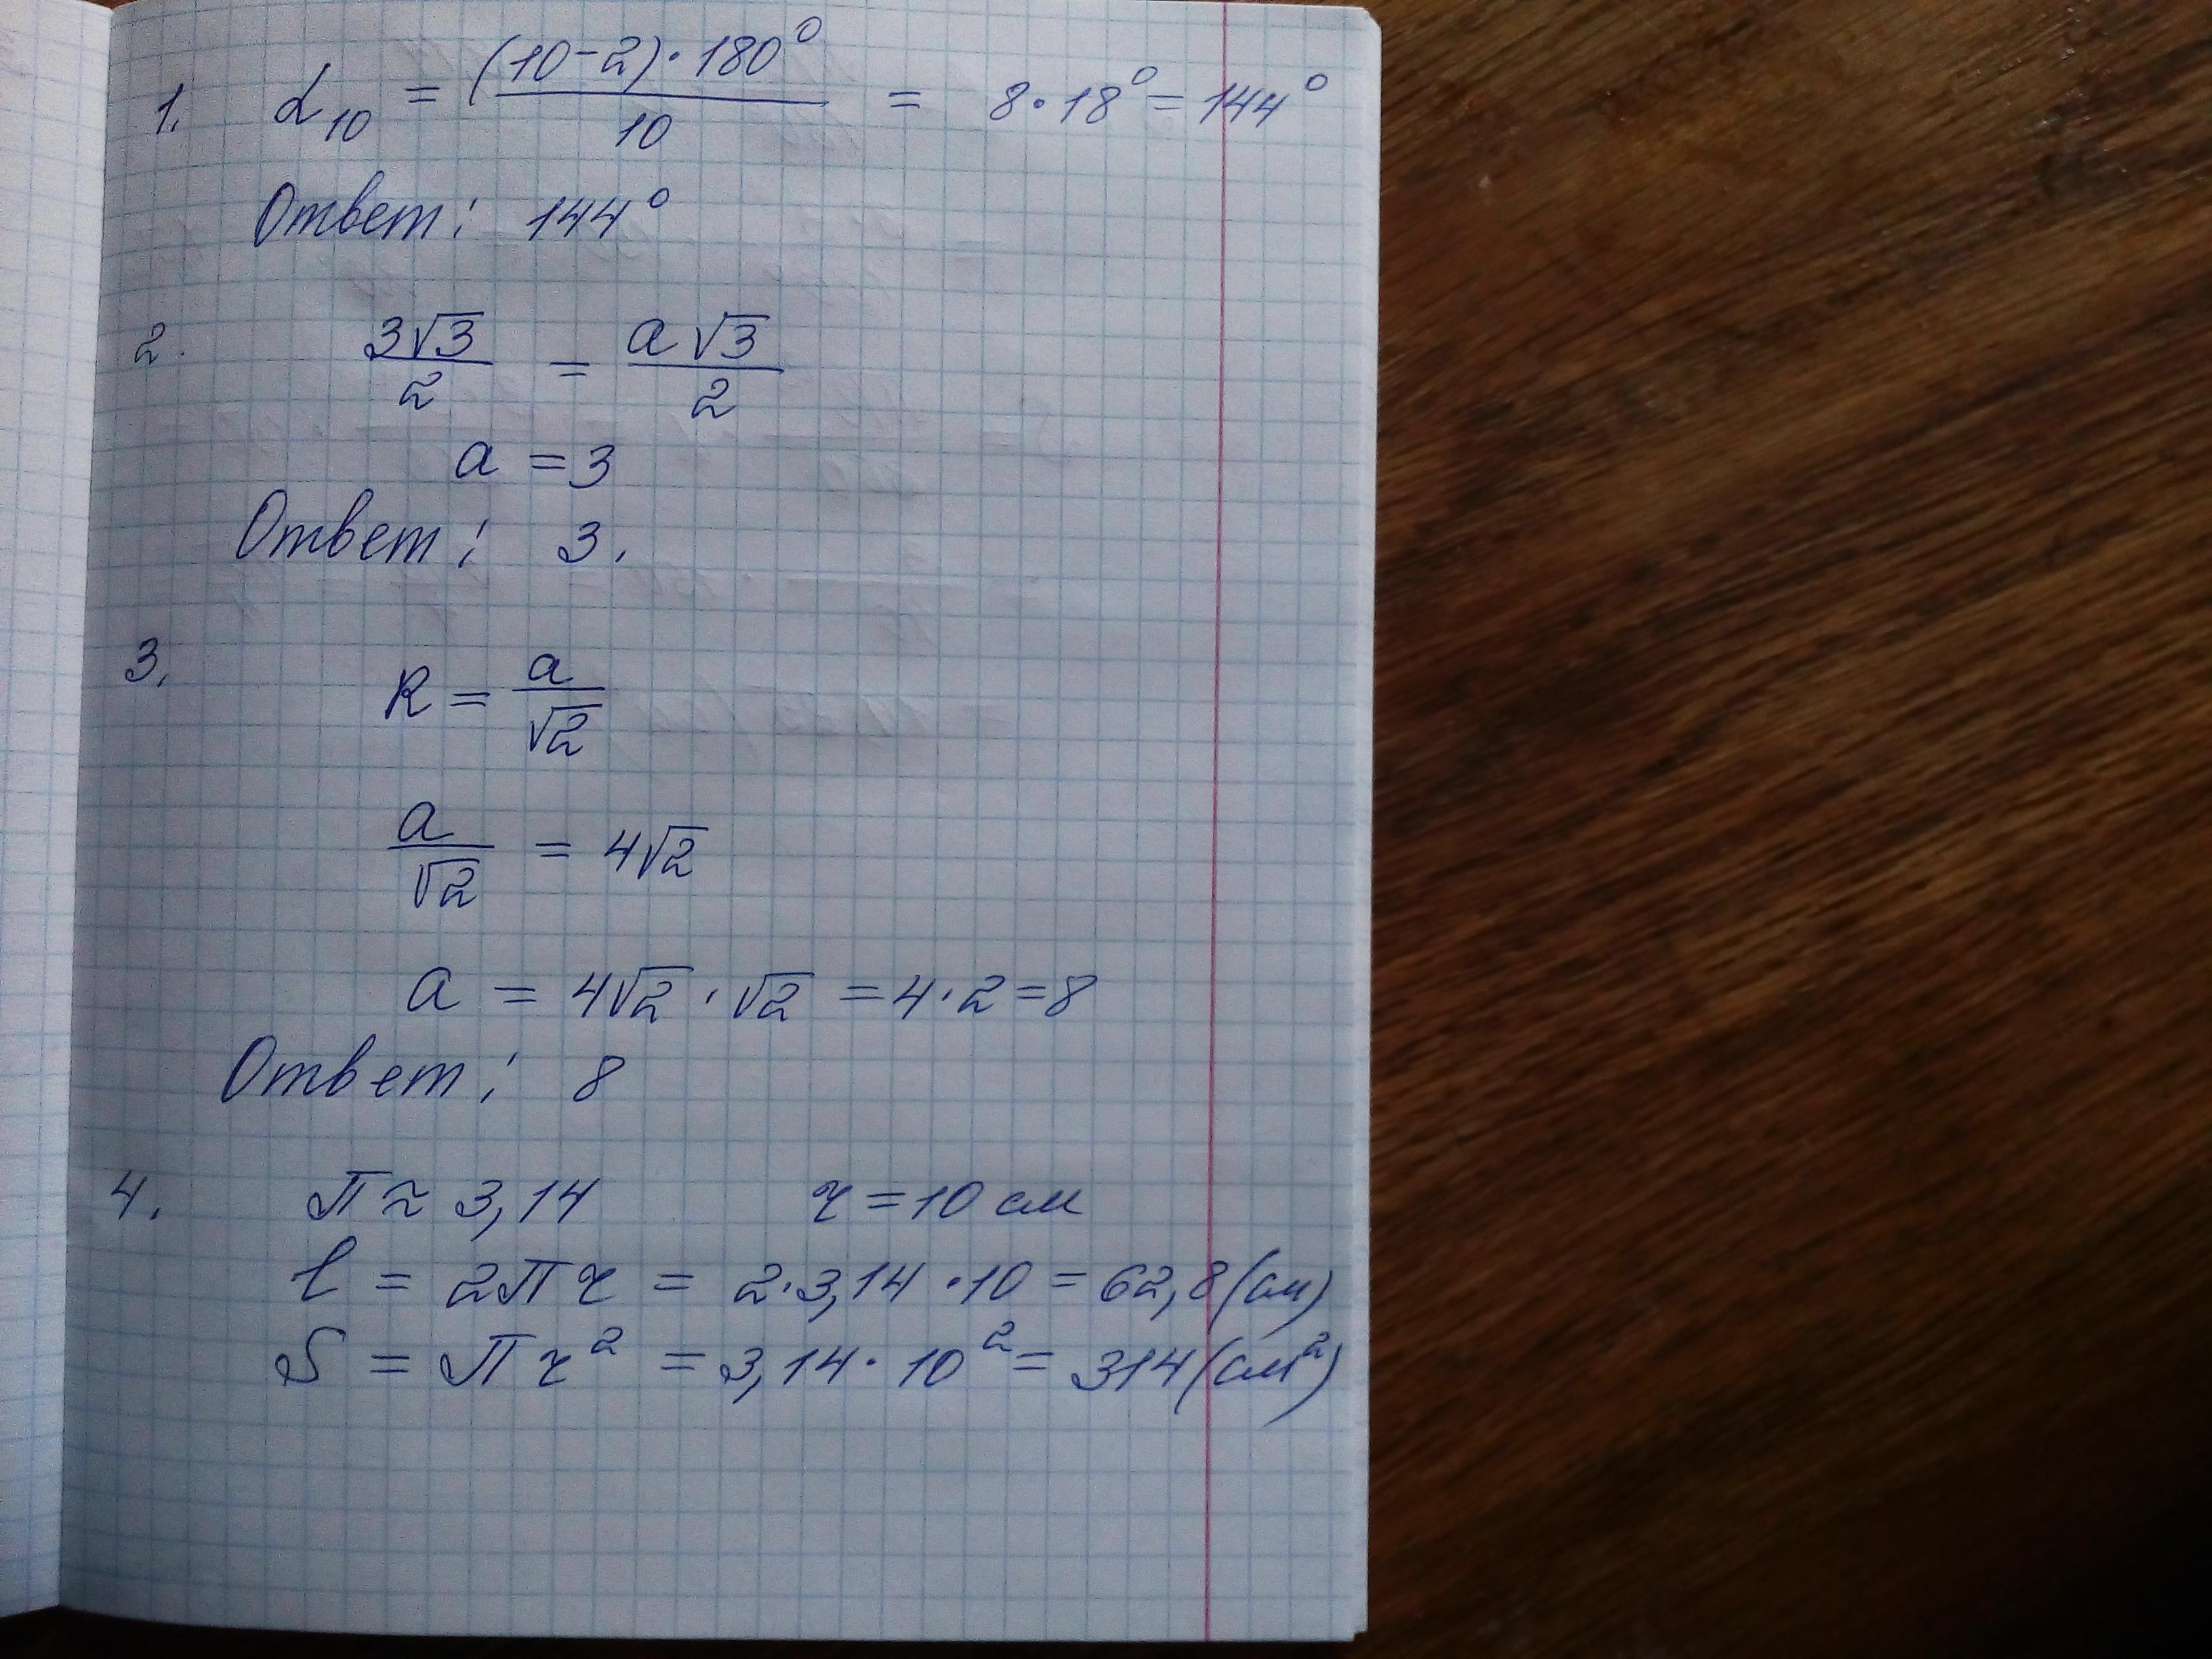 1. α₁₀ = (10-2)·180° / 10 = 8·18° = 144°
Ответ: 144°
2. 3√3 / 2 = a√3 / 2
a = 3
Ответ: 3.
3. R = a / √2
a / √2 = 4√2
a = 4√2 · √2 = 4·2 = 8
Ответ: 8
4. π ≈ 3,14 r = 10 см
l = 2πr = 2·3,14·10 = 62,8 (см)
S = πr² = 3,14·10² = 314 (см²)